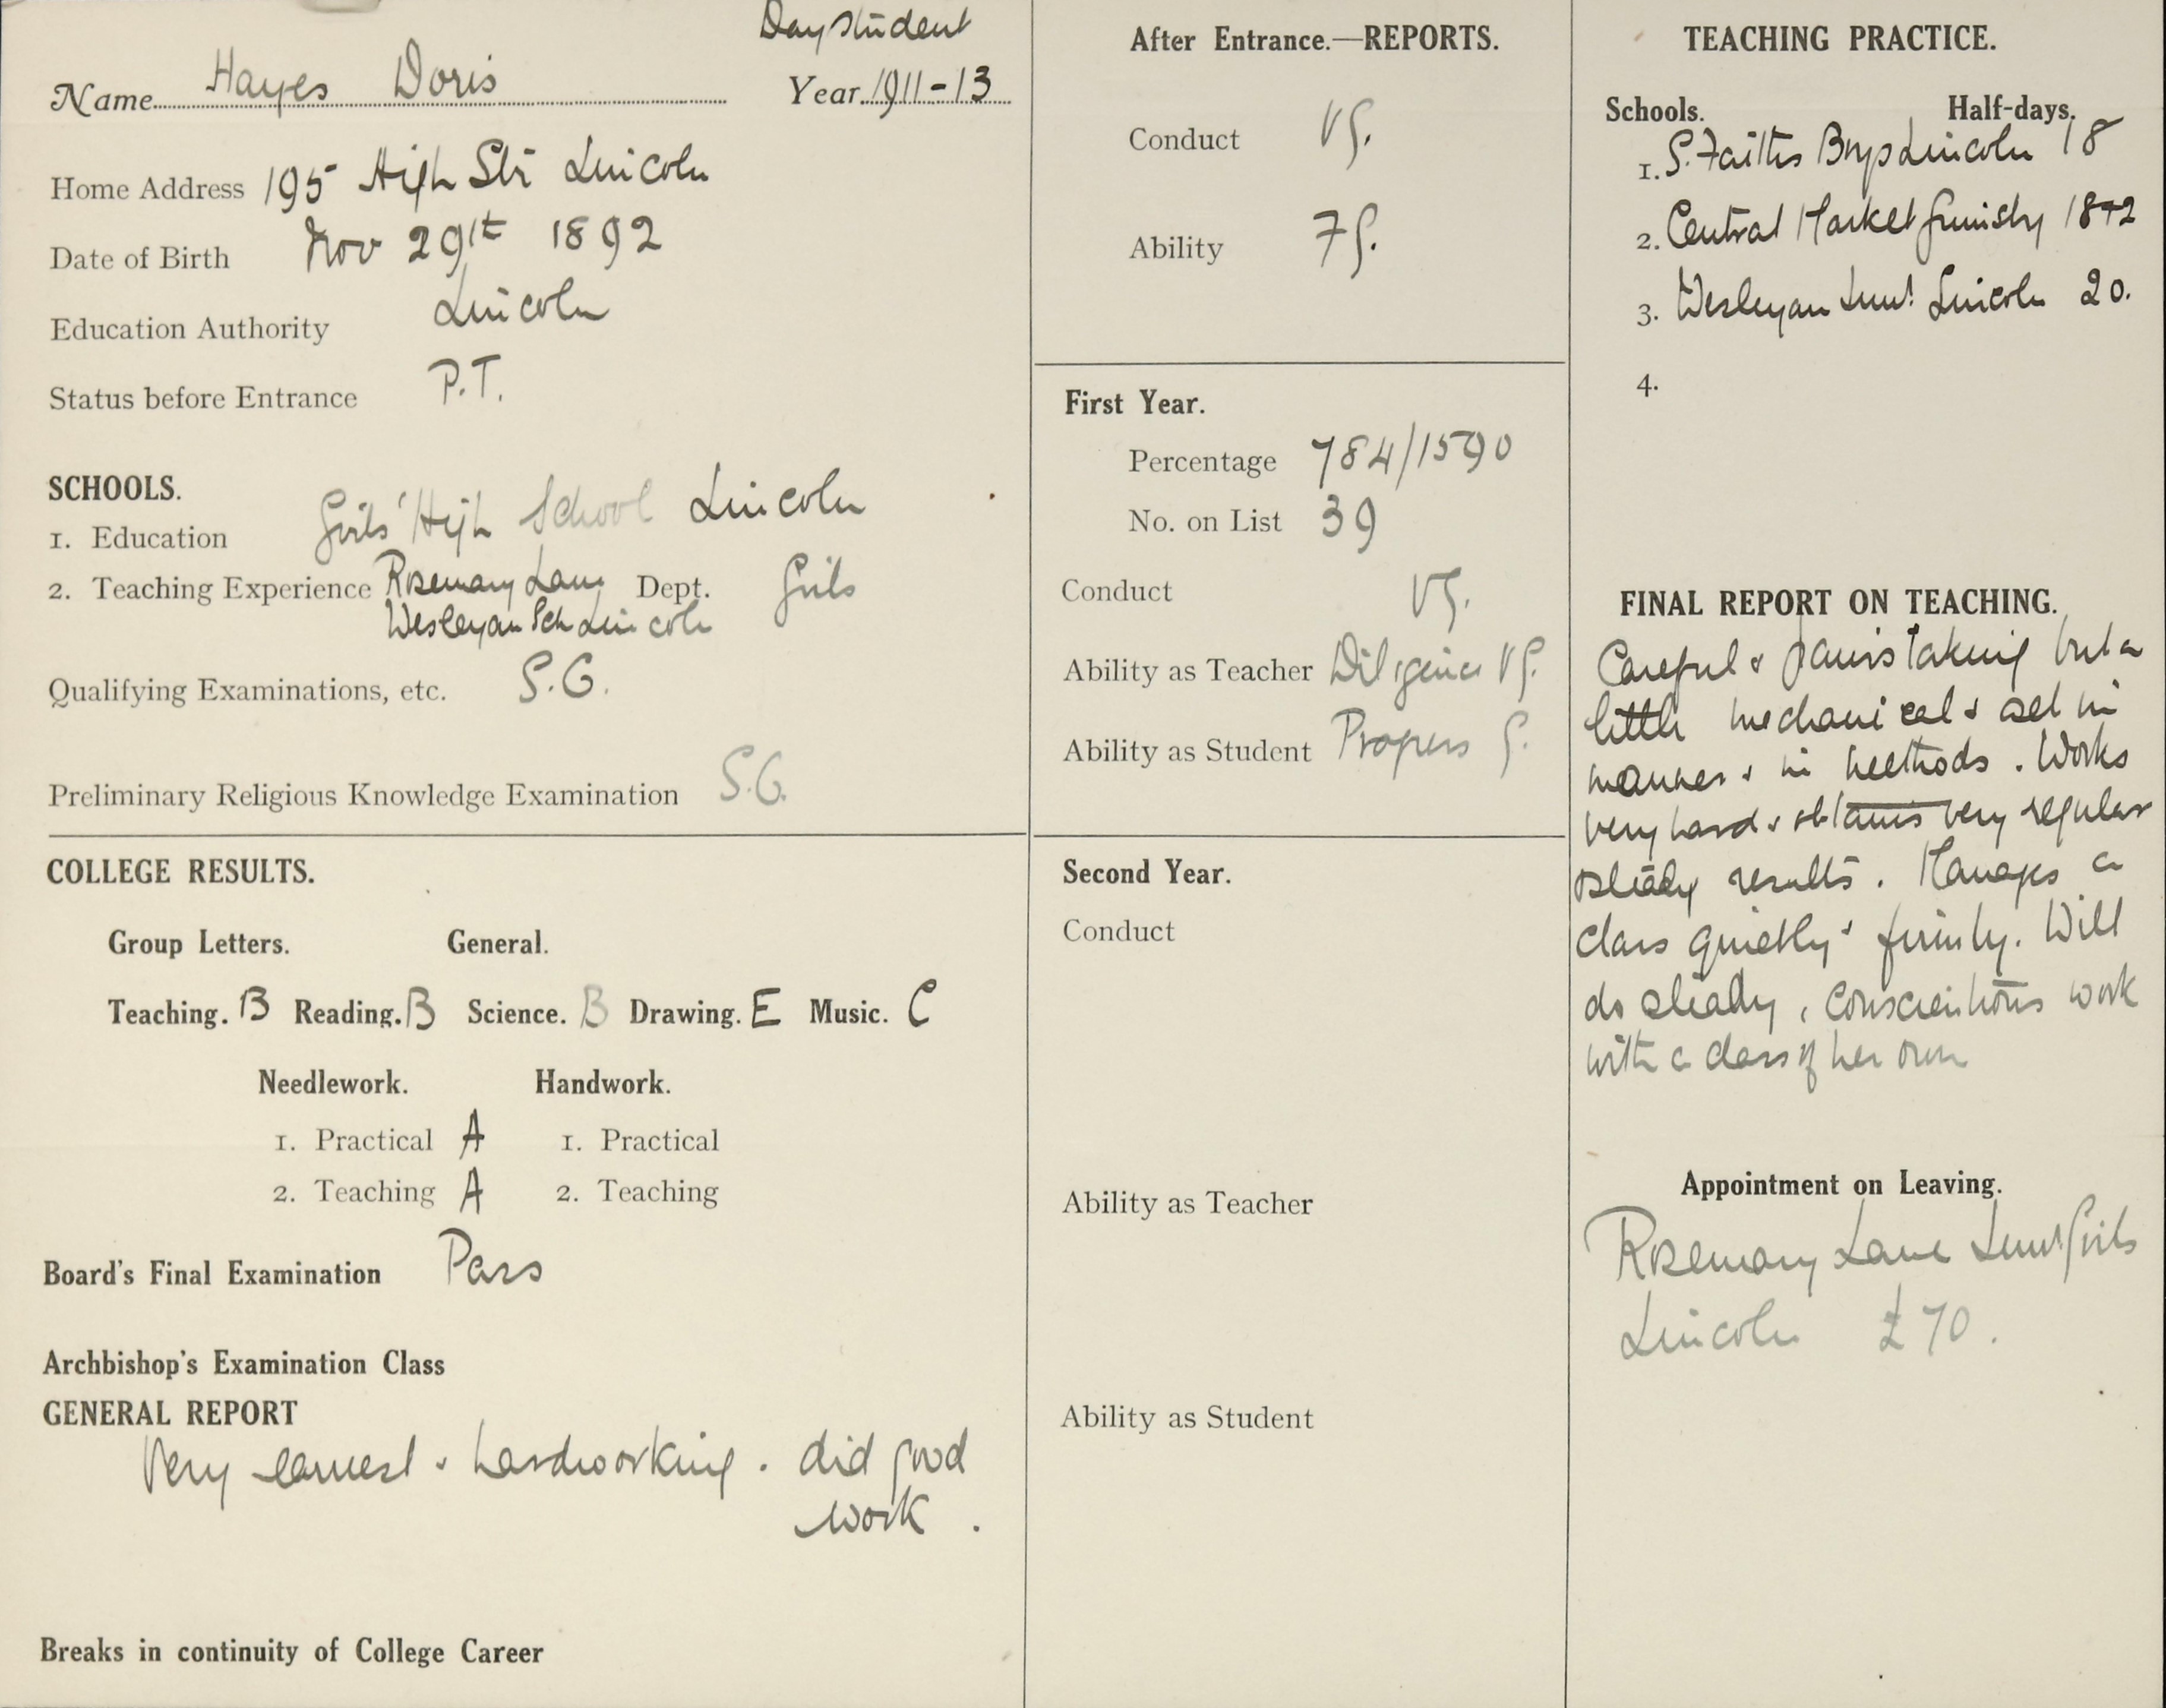 Day student
Name Hayes Doris Year 1911-13
Home Address 195 High Str Lincoln
Date of Birth Nov 29th 1892
Education Authority Lincoln
Status before Entrance P.T.
SCHOOLS.
1. Education Girls' High School Lincoln
2. Teaching Experience Rosemary Lane Dept. Girls
Wesleyan Sch Lincoln
Qualifying Examinations, etc. S.C.
Preliminary Religious Knowledge Examination S.C.
COLLEGE RESULTS.
Group Letters. General.
Teaching. B Reading. B Science. B Drawing. E Music. C
Needlework. Handwork.
1. Practical A 1. Practical
2. Teaching A 2. Teaching
Board's Final Examination Pass
Archbishop's Examination Class
GENERAL REPORT
Very earnest & hardworking. did good
work.
Breaks in continuity of College Career
After Entrance.—REPORTS.
Conduct VG.
Ability FG.
First Year.
Percentage 784/1590
No. on List 39
Conduct VG.
Ability as Teacher Diligence VG.
Ability as Student Progress G.
Second Year.
Conduct
Ability as Teacher
Ability as Student
TEACHING PRACTICE.
Schools. Half-days.
1. S. Faiths Boys Lincoln 18
2. Central Market Grimsby 18+2
3. Wesleyan Lincoln 20.
4.
FINAL REPORT ON TEACHING.
Careful & painstaking but a
little mechanical & set in
manner & in methods. Works
very hard & obtains very regular
steady results. Manages a
class quietly & firmly. Will
do steady, conscientious work
with a class of her own
Appointment on Leaving.
Rosemary Lane Girls
Lincoln £70.